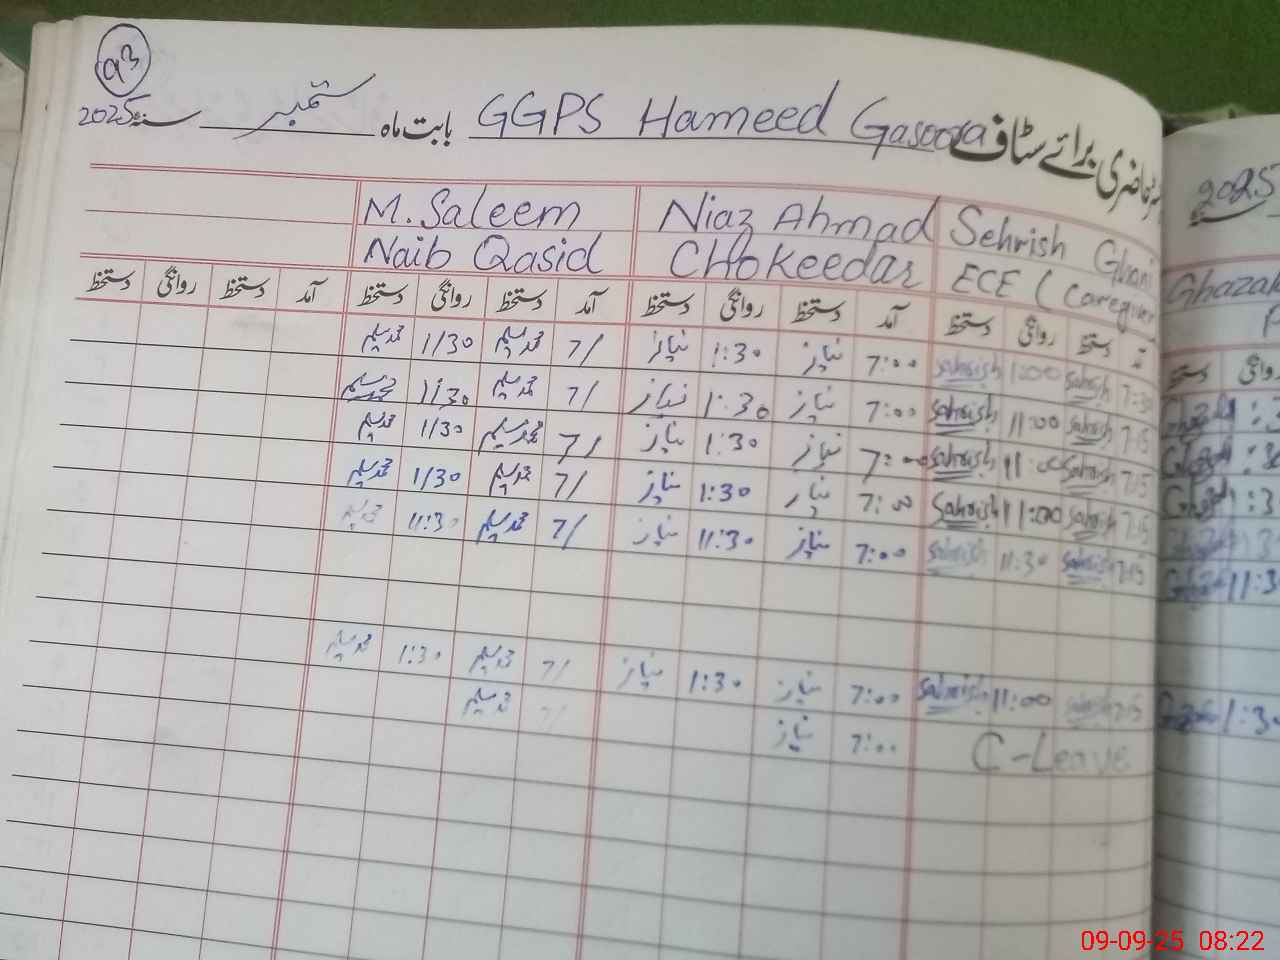 93
حاضری برائے سٹاف GGPS Hameed Gasoora بابت ماہ ستمبر سنہ 2025
2025
Sehrish Ghani Niaz Ahmad M. Saleem
ECE (Caregiver Chokeedar Naib Qasid
Ghazal
آمد دستخط روانگی دستخط آمد دستخط روانگی دستخط آمد دستخط روانگی دستخط آمد دستخط روانگی دستخط
روانگی دستخط
7:30 Sahrish 11:00 Sahrish 7:00 نیاز 1:30 نیاز 7/ محمد سلیم 1/30 محمد سلیم
7:15 Sahrish 11:00 Sahrish 7:00 نیاز 1:30 نیاز 7/ محمد سلیم 1:30 محمد سلیم
7:15 Sahrish 11:00 Sahrish 7:00 نیاز 1:30 نیاز 7/ محمد سلیم 1/30 محمد سلیم
7:15 Sahrish 11:00 Sahrish 7:00 نیاز 1:30 نیاز 7/ محمد سلیم 1/30 محمد سلیم
7:15 Sahrish 11:30 Sahrish 7:00 نیاز 11:30 نیاز 7/ محمد سلیم 11:30 محمد سلیم
7:15 Sahrish 11:00 Sahrish 7:00 نیاز 1:30 نیاز 7/ محمد سلیم 1:30 محمد سلیم
C-Leave 7:00 نیاز 7/ محمد سلیم
09-09-25 08:22